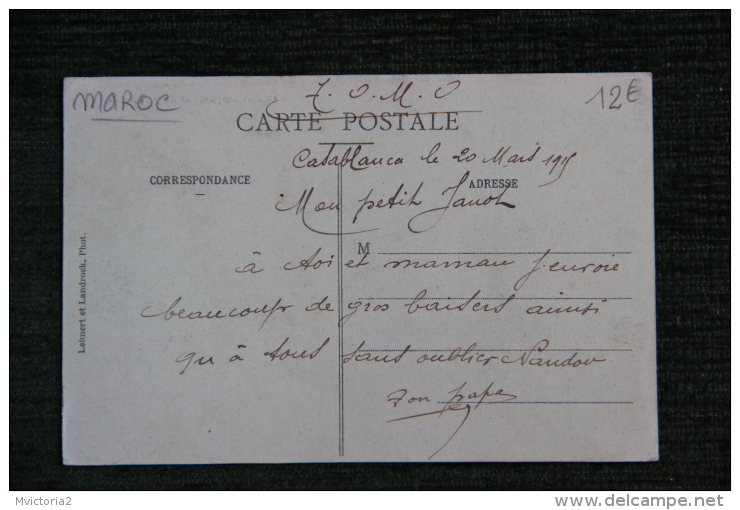 MAROC
12€
T. O. M. O
CARTE POSTALE
Casablanca le 20 Mars 1915
CORRESPONDANCE
ADRESSE
Mon petit Janot
M
à toi et maman j'envoie
beaucoup de gros baisers ainsi
qu'à tous sans oublier Nandou
Ton papa
Lehnert et Landrock, Phot.
Mvictoria2
www.delcampe.net